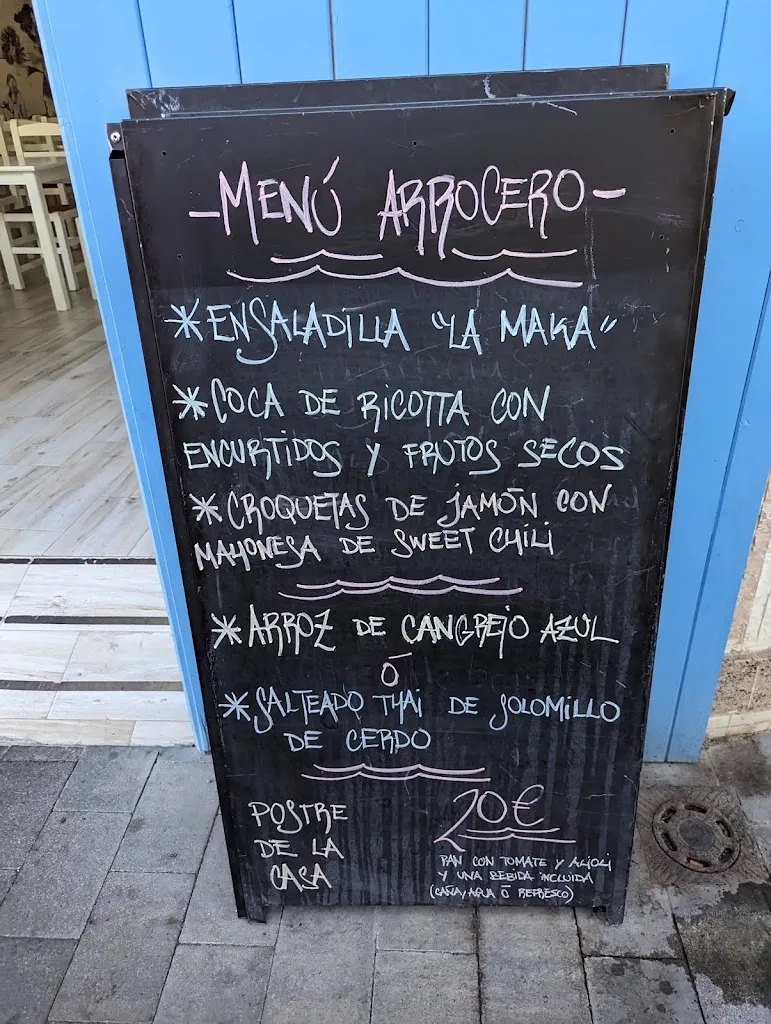 -MENÚ ARROCERO-
*ENSALADILLA "LA MAKA"
*COCA DE RICOTTA CON
ENCURTIDOS Y FRUTOS SECOS
*CROQUETAS DE JAMÓN CON
MAYONESA DE SWEET CHILI
*ARROZ DE CANGREJO AZUL
Ó
*SALTEADO THAI DE SOLOMILLO
DE CERDO
POSTRE
DE LA
CASA
20€
PAN CON TOMATE Y ALIOLI
Y UNA BEBIDA INCLUIDA
(CAÑA, AGUA Ó REFRESCO)